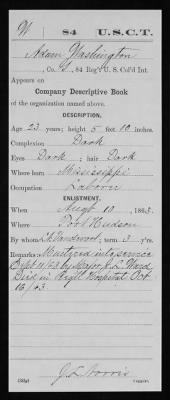 W 84 U.S.C.T.
Adam Washington
, Co. , 84 Reg't U. S. Col'd Inf.
Appears on
Company Descriptive Book
of the organization named above.
DESCRIPTION.
Age 23 years; height 5 feet 10 inches.
Complexion Dark
Eyes Dark ; hair Dark
Where born Mississippi
Occupation Laborer
ENLISTMENT.
When Augt 10 , 186
Where Port Hudson
By whom ; term 3 y'rs.
Remarks: Mustered into service
Sept 11/63 by Major Ward
Died in Hospital Oct
16/63
Copyist.